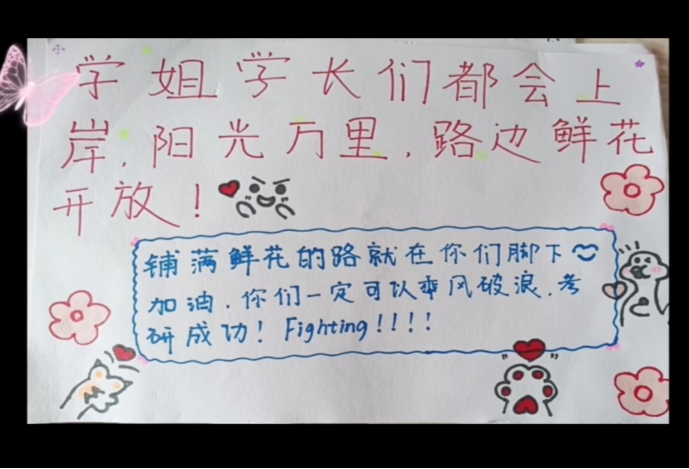 学姐学长们都会上
岸，阳光万里，路边鲜花
开放！
铺满鲜花的路就在你们脚下
加油，你们一定可以乘风破浪，考
研成功！Fighting！！！！